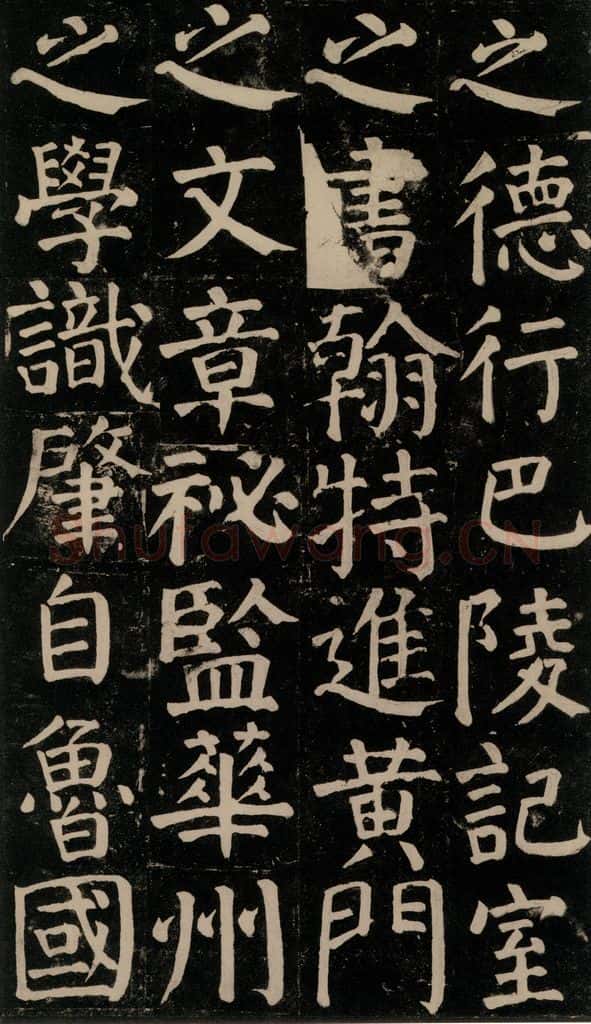 之德行巴陵記室
之書翰特進黃門
之文章祕監華州
之學識肇自魯國
Shufawang.CN